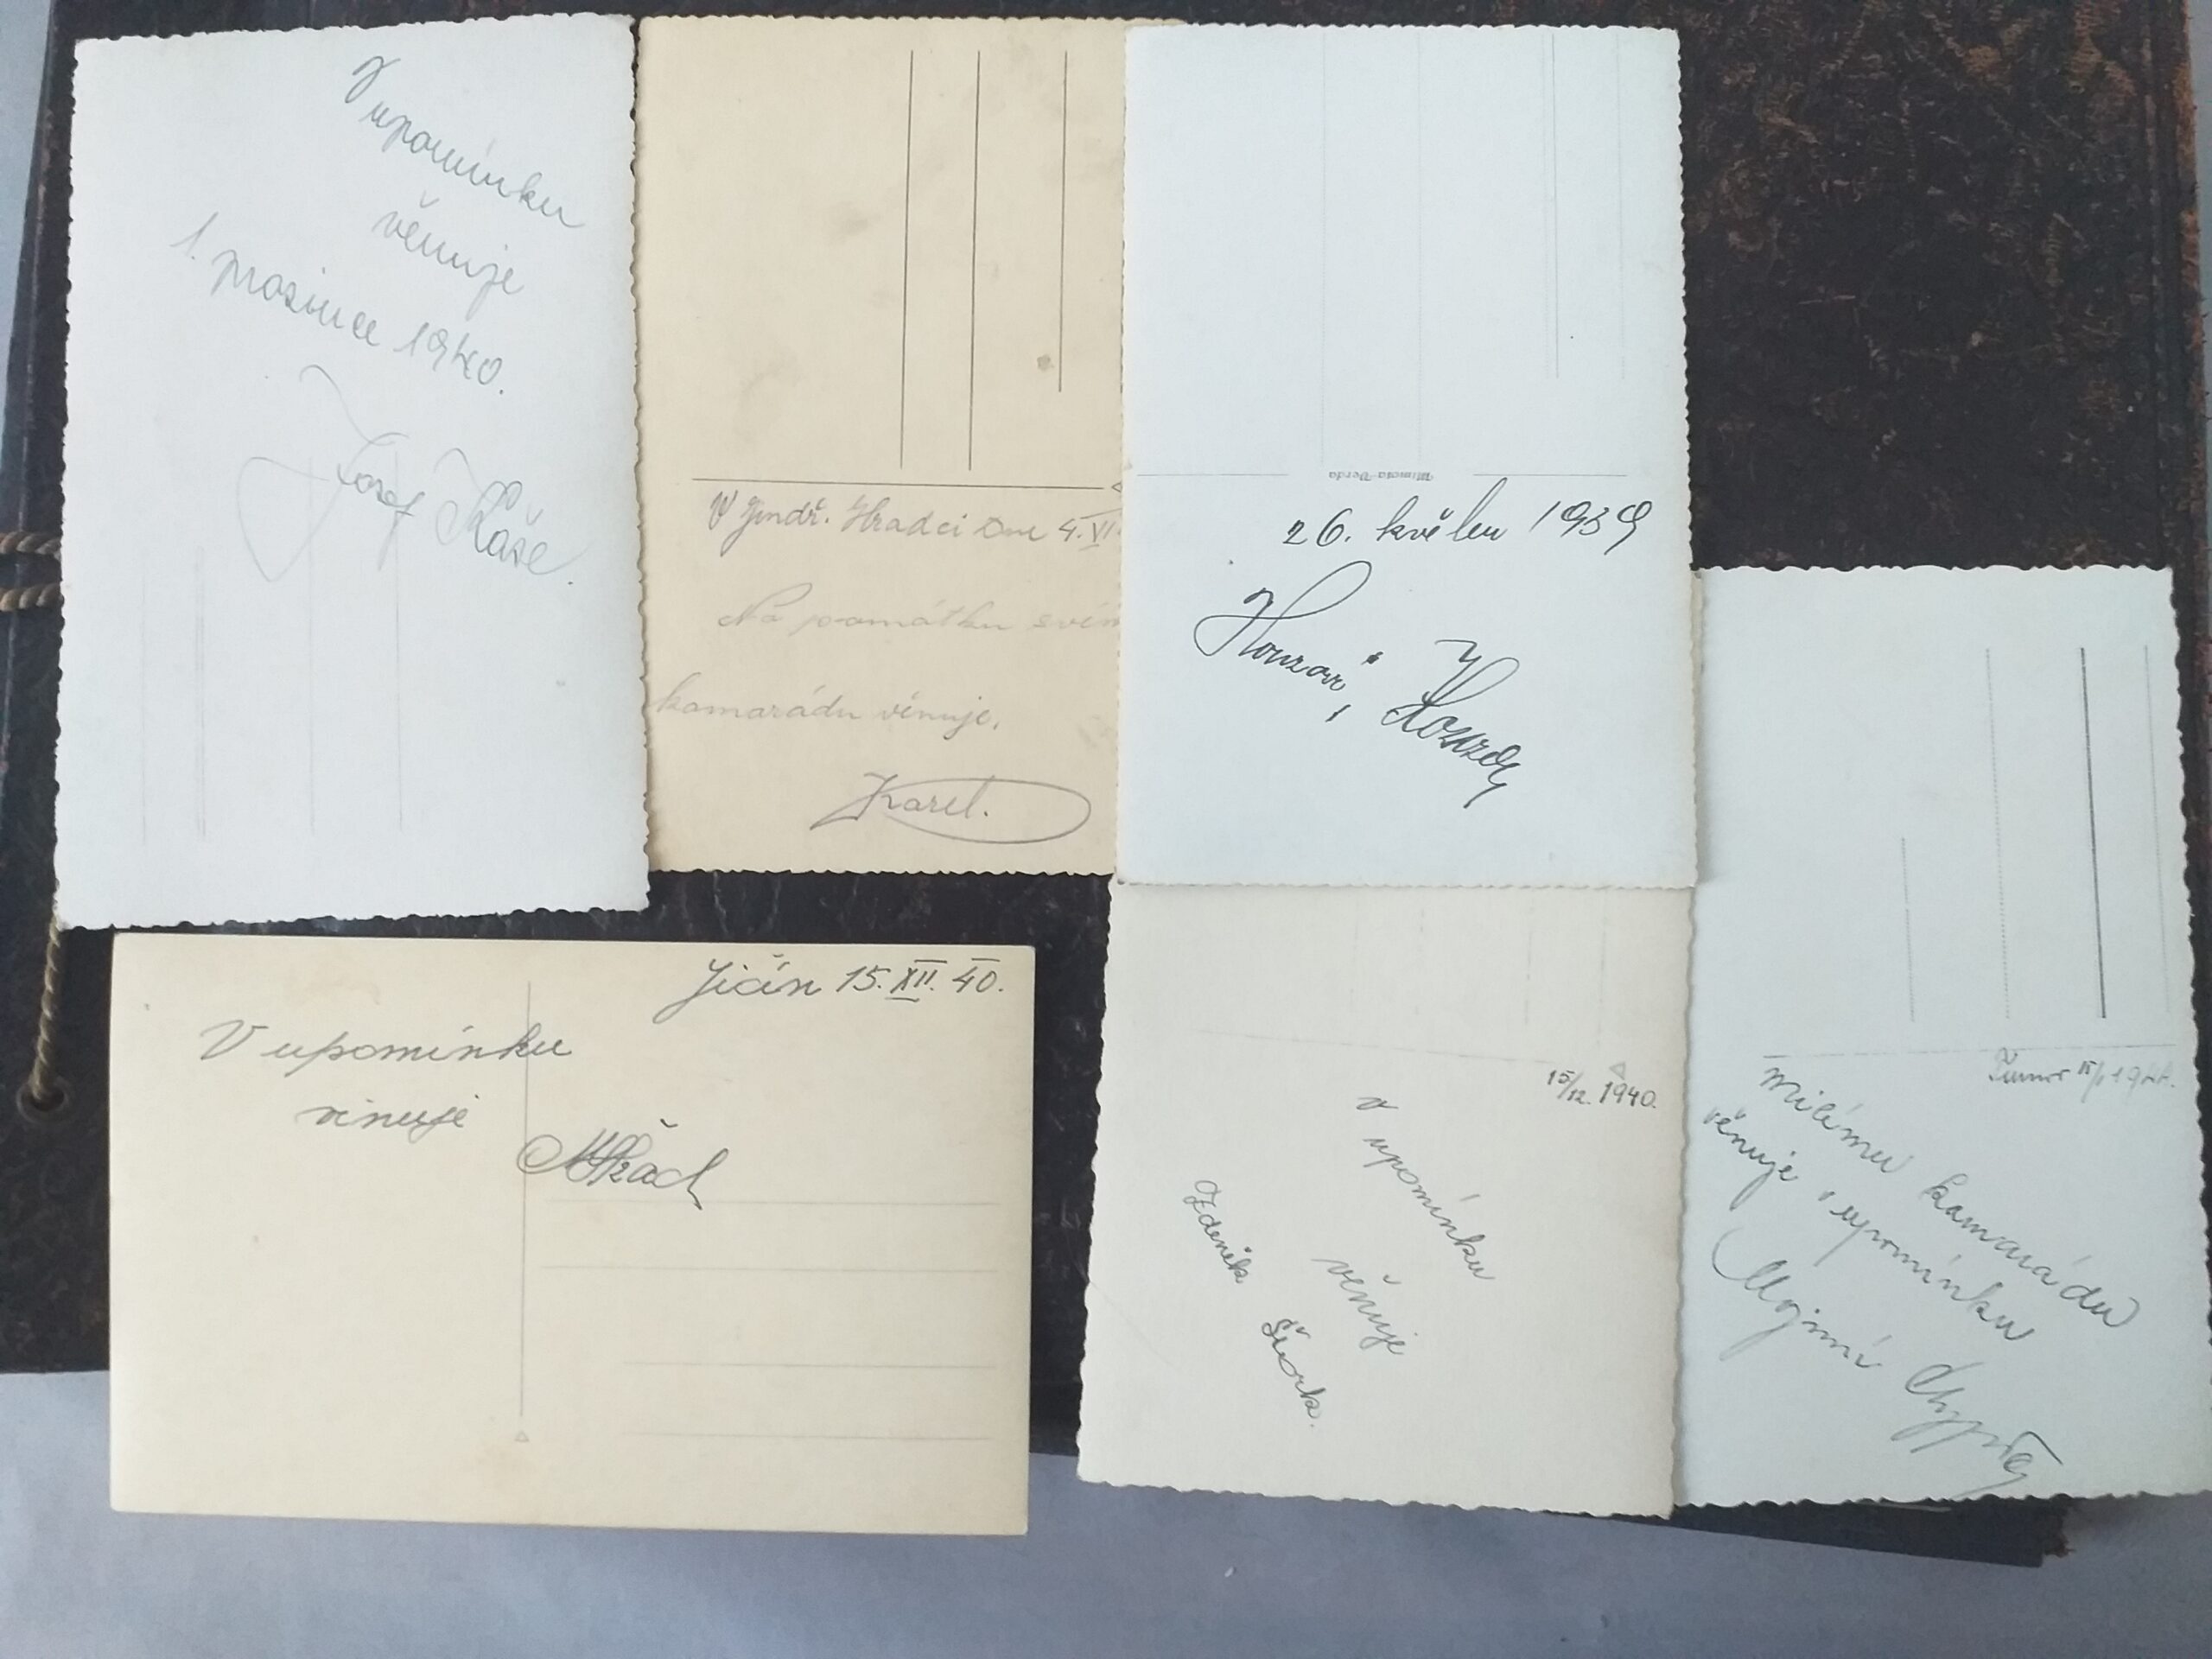 V
upomínku
věnuje
1. prosince 1940.
Josef Káše.
V Jindř. Hradci Dne 4. VI
Na památku svém
kamarádu věnuje.
Karel.
Mimosa-Verda
26. květen 1939
Honzovi,
Jičín 15. XII. 40.
V upomínku
věnuje
15/12. 1940.
v
upomínku
věnuje
Zdeněk
Milému kamarádu
věnuje v upomínku